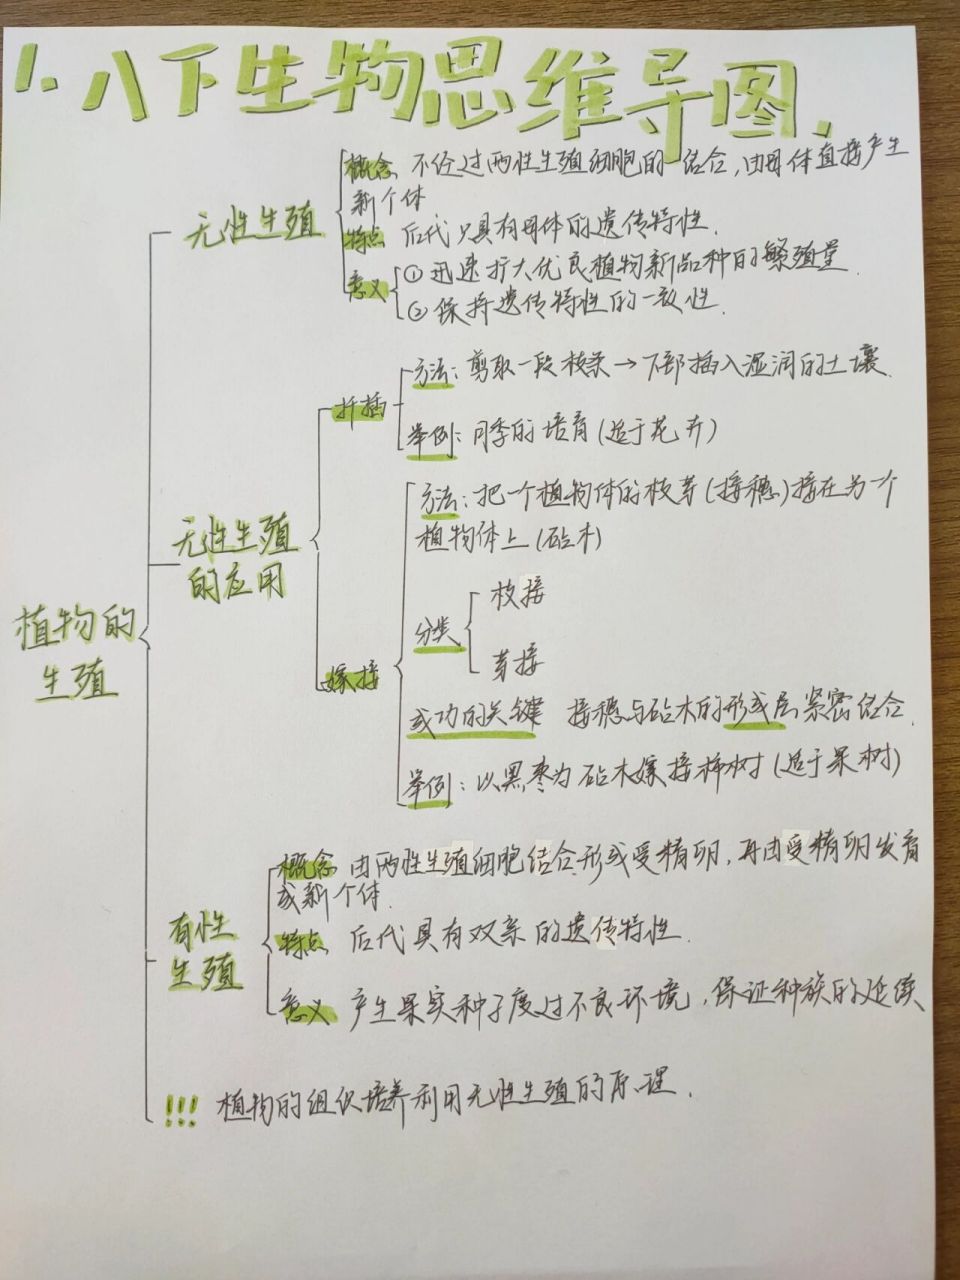 1. 八下生物思维导图.
概念 不经过两性生殖细胞的结合,由母体直接产生
新个体
无性生殖
特点 后代只具有母体的遗传特性.
意义 ①迅速扩大优良植物新品种的繁殖量
②保持遗传特性的一致性.
方法: 剪取一段枝条→下部插入湿润的土壤.
扦插
举例: 月季的培育(适于花卉)
方法: 把一个植物体的枝芽(接穗)接在另一个
植物体上(砧木)
无性生殖
的应用
枝接
分类
芽接
嫁接
成功的关键 接穗与砧木的形成层紧密结合.
举例: 以黑枣为砧木嫁接柿树(适于果树)
植物的
生殖
概念 由两性生殖细胞结合形成受精卵,再由受精卵发育
成新个体.
有性
生殖
特点 后代具有双亲的遗传特性.
意义 产生果实种子度过不良环境,保证种族的延续
!!! 植物的组织培养利用无性生殖的原理.